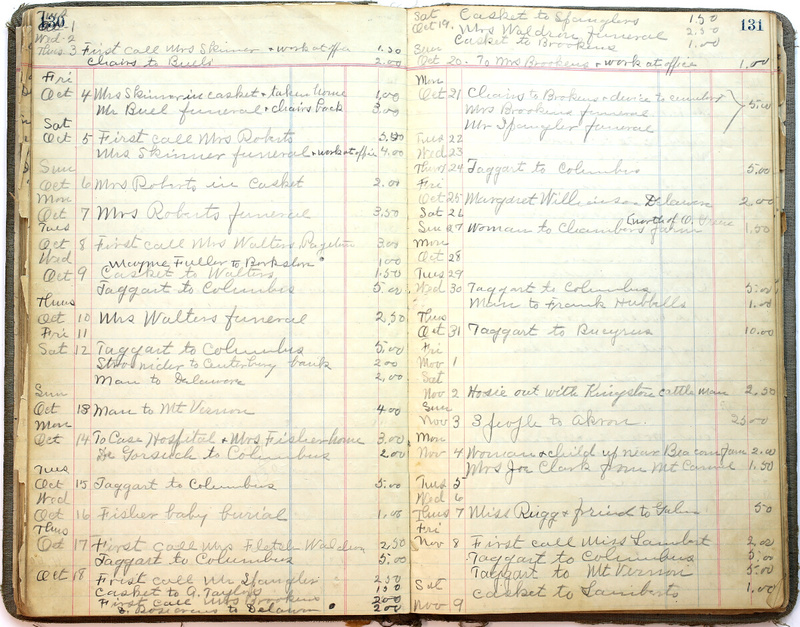 130
Tues
Oct 1
Wed 2
Thurs 3 First call Mrs Skinner + work at office 1.50
Chairs to Buels 2.00
Fri
Oct 4 Mrs Skinner in casket + taken home 1.00
Mr Buel funeral + chairs back 3.00
Sat
Oct 5 First call Mrs Roberts
Mrs Skinner funeral + work at office 4.00
Sun
Oct 6 Mrs Roberts in Casket 2.00
Mon
Oct 7 Mrs Roberts funeral 3.50
Tues
Oct 8 First call Mrs Walters 3.00
Wed Mayme Fuller to 1.00
Oct 9 Casket to Walters 1.50
Taggart to Columbus 5.00
Thurs
Oct 10 Mrs Walters funeral 2.50
Fri 11
Sat 12 Taggart to Columbus 5.00
to Centerburg bank 2.00
Man to Delaware 2.00
Sun
Oct 13 Man to Mt Vernon 4.00
Mon
Oct 14 To Case Hospital + Mrs Fisher home 3.00
Dr Gorsuch to Columbus 2.00
Tues
Oct 15 Taggart to Columbus 5.00
Wed
Oct 16 Fisher baby burial 1.00
Thurs
Oct 17 First call Mrs Fletch Waldron 2.50
Taggart to Columbus 5.00
Oct 18 First call Mr Spangler 2.50
Casket to G. Taylors 1.50
First call Mrs Brookens 2.00
to Delaware 2.00
131
Sat Casket to Spanglers 1.50
Oct 19. Mrs Waldron funeral 2.50
Casket to Brookens 1.00
Sun
Oct 20. To Mrs Brookens + work at office 1.00
Mon
Oct 21 Chairs to Brokens + device to cemetery
Mrs Brookens funeral 5.00
Mr Spangler funeral
Tues 22
Wed 23
Thurs 24 Taggart to Columbus 5.00
Fri
Oct 25 Margaret Williamson Delaware 2.00
Sat 26
Sun 27 Woman to Chambers farm 1.50
Mon
Oct 28
Tues 29
Wed 30 Taggart to Columbus 5.00
Man to Frank Hubbells 1.00
Thurs
Oct 31 Taggart to Bucyrus 10.00
Fri
Nov 1
Sat
Nov 2 Hosie out with Kingston cattle man 2.50
Sun
Nov 3 3 people to Akron. 25.00
Mon
Nov 4 Woman + child up near Beacom farm 2.00
Mrs Joe Clark from Mt Carmel 1.50
Tues 5
Wed 6
Thurs 7 Miss Rugg + friend to Galena 50
Fri
Nov 8 First call Miss Lambert 2.00
Taggart to Columbus 5.00
Taggart to Mt Vernon 5.00
Sat Casket to Lamberts 1.00
Nov 9